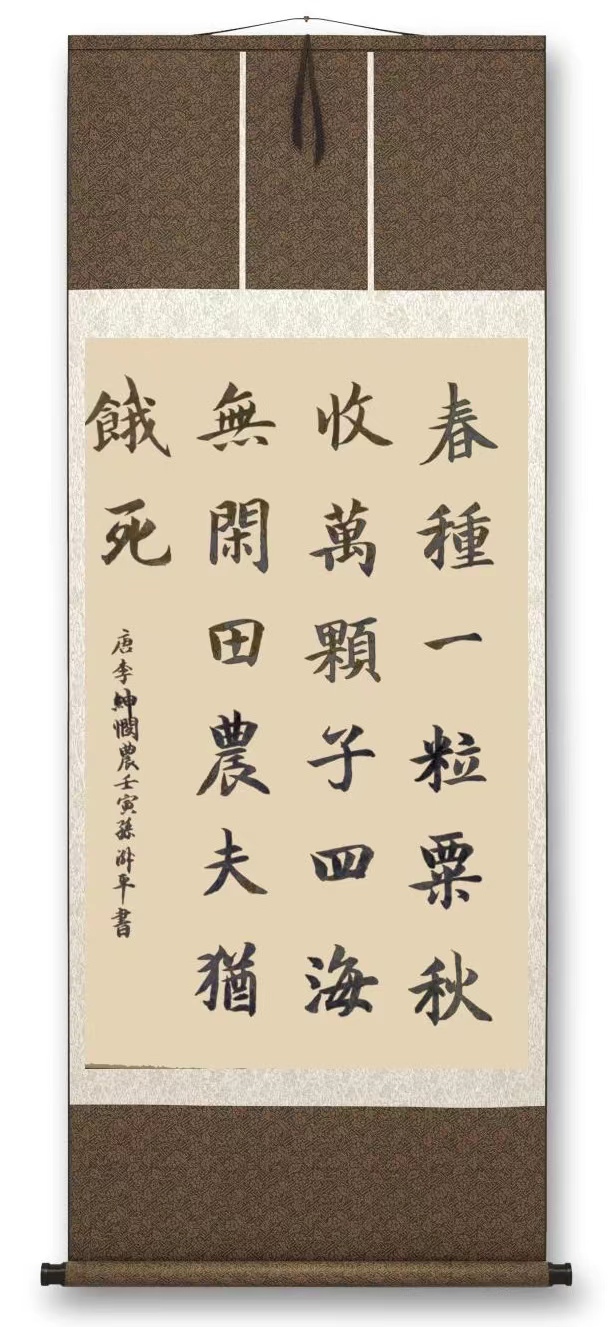 春種一粒粟秋
收萬顆子四海
無閑田農夫猶
餓死
唐李紳憫農壬寅孫 平書